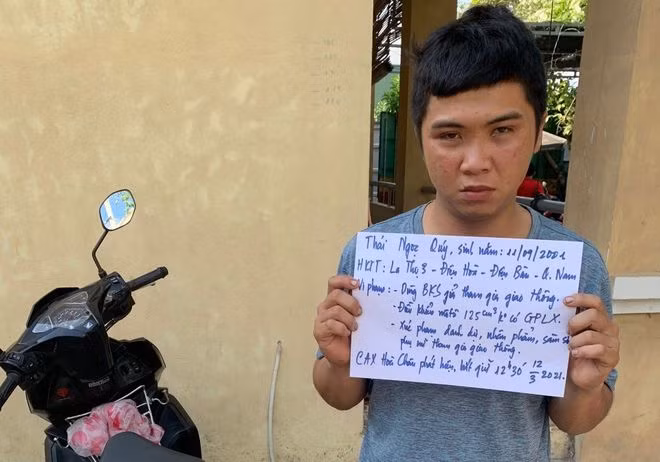 Thái Ngọc Quý, sinh năm: 11/09/2001
HKTT: La Thọ 3 - Điện Hoà - Điện Bàn - Q. Nam
Vi phạm: - Dùng BKS giả tham gia giao thông.
- Điều khiển môtô 125cm³ k° có GPLX.
- Xúc phạm danh dự, nhân phẩm, sàm sỡ
phụ nữ tham gia giao thông.
CAX Hoà Châu phát hiện, bắt giữ 12h30' 12/3 2021.